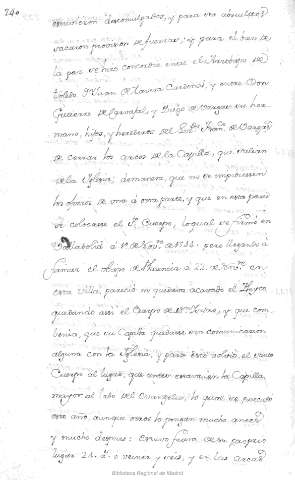 240
comunion descomulgados, y para ser absueltos
sacaron provision de fuerzas: y para el bien de
la paz se hizo concordia entre el Arzobispo de
toledo D. Juan de Tavera Cardenal, y entre Don
Gutierre de Carvajal, y Diego de Vargas su her-
mano, hijos, y herederos del Lic.do Fran.co de Vargas
de cerrar los arcos de la Capilla, que salian
de la Iglesia; demanera, que no se impidiesen
los oficios de una á otra parte, y que en esta pared
se colocase el S. Cuerpo, lo qual se firmó en
Valladolid á de 1544. pero llegando á
firmar el Obispo de Plasencia a 12. de en
esta villa, pareció no quedava acabado el
quedando alli el Cuerpo de S.n Isidro, y que con-
benia, que su Capilla quedase sin comunicacion
alguna con la Iglesia, y para esto volvió el santo
Cuerpo al lugar, que antes estava en la Capilla
mayor al lado del Evangelio, lo qual se
este año, aunque otros lo pongan mucho antes
y mucho despues: Estuvo fuera de su propio
lugar 24. a.s o veinte y seis, y en las arcas
Biblioteca Regional de Madrid